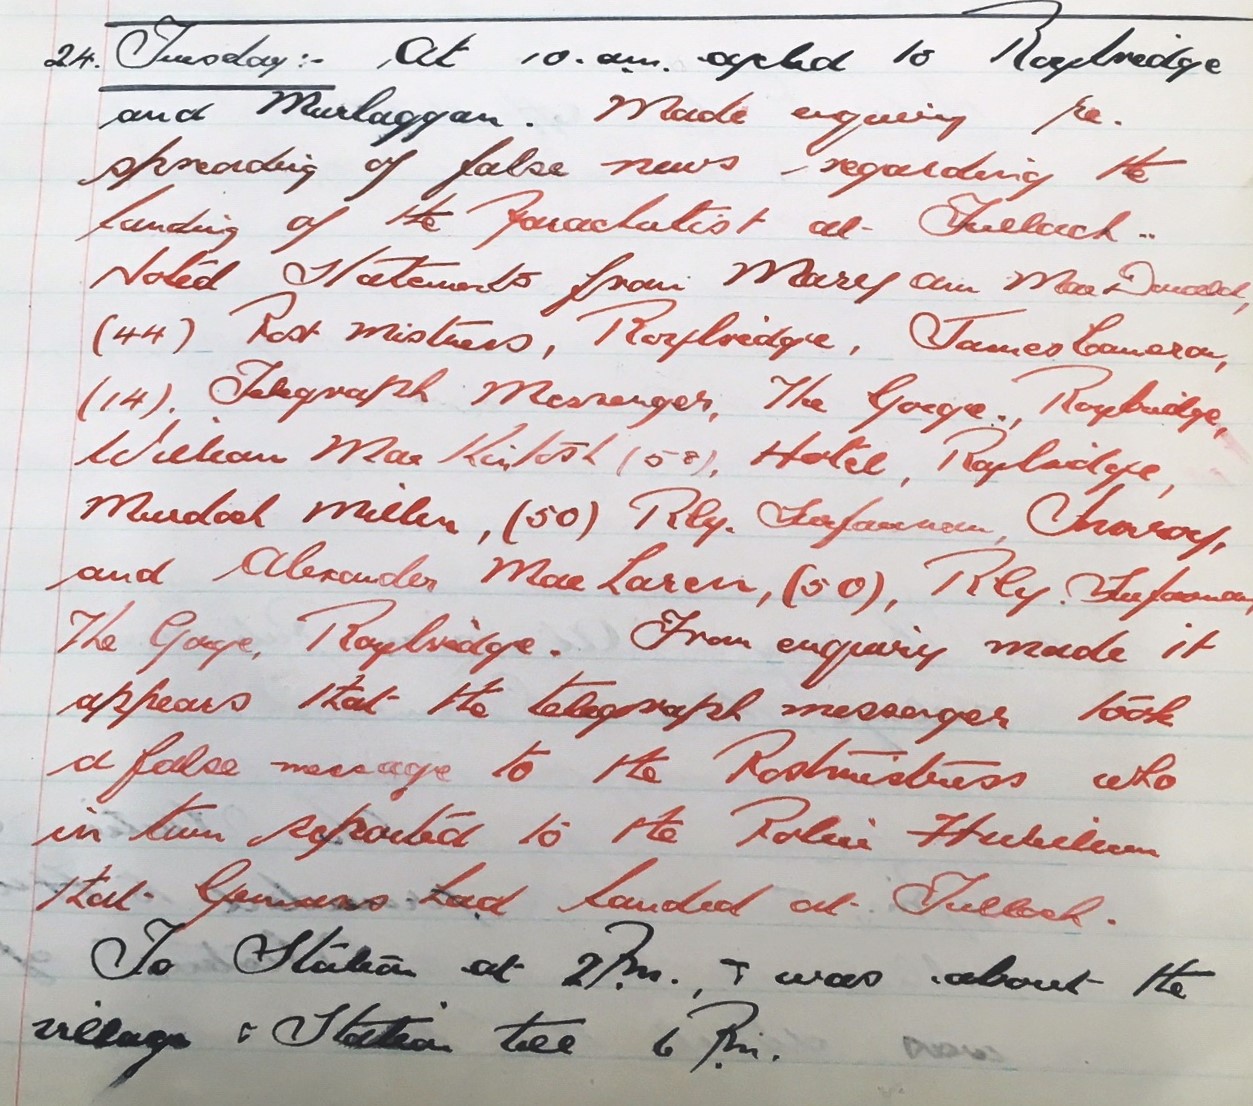 24. Tuesday:- At 10. am. cycled to Roybridge
and Murlaggan. Made enquiry re.
spreading of false news regarding the
landing of the Parachutist at Tulloch..
Noted Statements from Mary ann MacDonald,
(44) Post Mistress, Roybridge, James Cameron,
(14), Telegraph Messenger, The Gorge., Roybridge,
William MacKintosh (58), Hotel, Roybridge,
Murdoch Miller, (50) Rly. Surfaceman, Inveroy,
and Alexander MacLaren, (50), Rly. Surfaceman,
The Gorge, Roybridge. From enquiry made it
appears that the telegraph messenger took
a false message to the Postmistress who
in turn reported to the Police
that Germans had landed at Tulloch.
To Station at 2 Pm., & was about the
village & Station till 6 Pm.